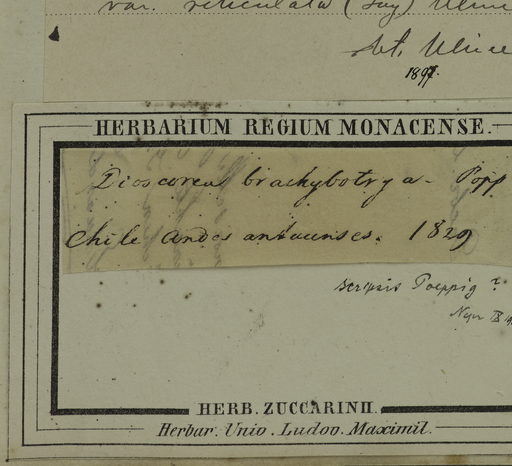 var. reticulata (Gay) Uline
det. Uline
1897.
HERBARIUM REGIUM MONACENSE.
Dioscorea brachybotrya - Pöpp
Chile Andes antucenses. 1829
scripsit Poeppig ?
HERB. ZUCCARINII.
Herbar. Univ. Ludov. Maximil.